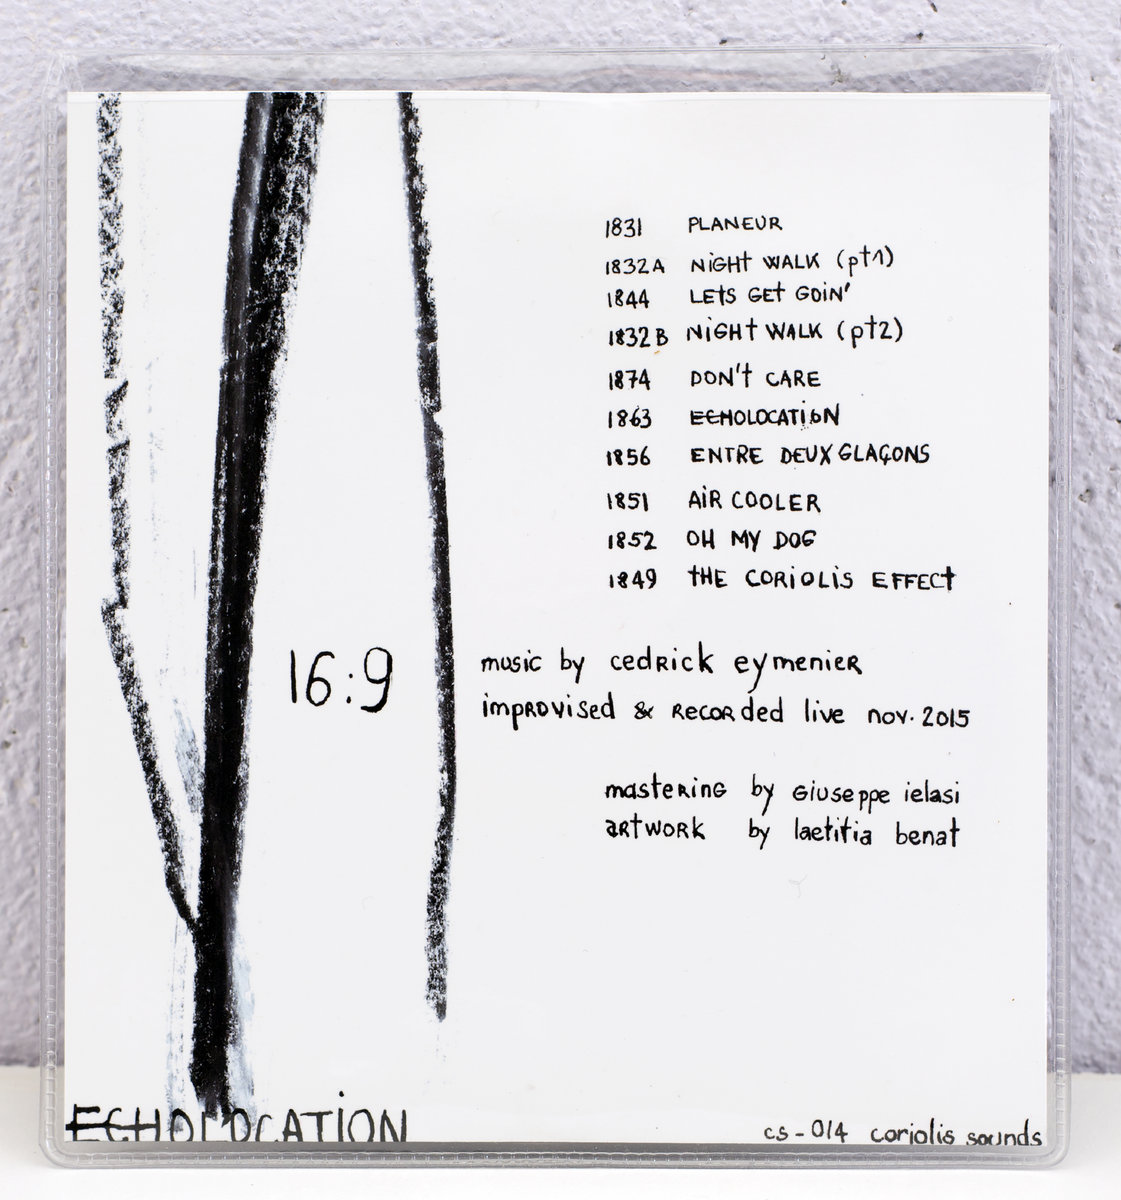 1831 PLANEUR
1832A NiGHt WALK (pt1)
1844 LEtS GEt GOiN'
1832B NiGHt WALK (pt2)
1874 DON't CARE
1863 ECHOLOCATiON
1856 ENTRE DEUX GLAÇONS
1851 AiR COOLER
1852 OH MY DOG
1849 tHE CORiOLiS EFFECt
16:9
music by cedRick eymenieR
impROvised & RecoRded live nov. 2015
masteRiNG by Giuseppe ielasi
aRtwoRk by laetitia benat
ECHOLOCATiON
cs-014 coriolis sounds